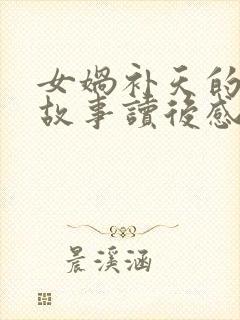 女媧补天的
故事讀後感
晨溪涵